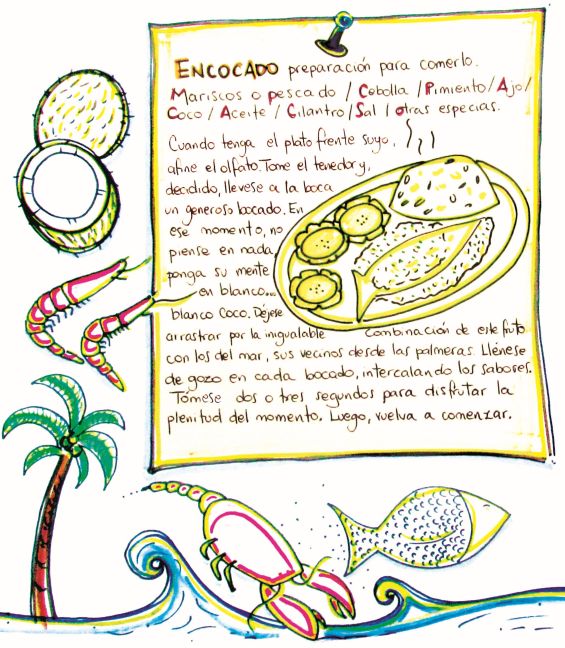 ENCOCADO preparación para comerlo.
Mariscos o pescado / Cebolla / Pimiento / Ajo /
Coco / Aceite / Cilantro / Sal / otras especias.
Cuando tenga el plato frente suyo,
afine el olfato. Tome el tenedor y,
decidido, llevese a la boca
un generoso bocado. En
ese momento, no
piense en nada
ponga su mente
en blanco...
blanco Coco. Déjese
arrastrar por la inigualable combinación de este fruto
con los del mar, sus vecinos desde las palmeras. Llénese
de gozo en cada bocado, intercalando los sabores.
Tómese dos o tres segundos para disfrutar la
plenitud del momento. Luego, vuelva a comenzar.